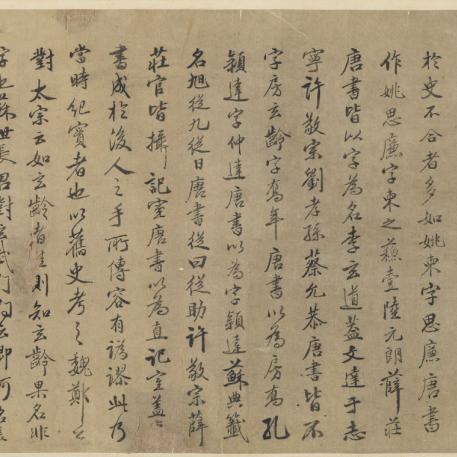 於史不合者多如姚柬字思廉唐書
作姚思廉字柬之蘇壹陸元朗薛莊
唐書皆以字為名李玄道蓋文達于志
寧許敬宗劉孝孫蔡允恭唐書皆不
字房玄齡字喬年唐書以為房喬孔
穎達字仲達唐書以為字穎達蘇典籤
名旭從九從日唐書從曰從助許敬宗薛
莊官皆攝記室唐書以為直記室蓋
書成於後人之手所傳容有譌謬此乃
當時紀實者也以舊史考之魏鄭公
對太宗云如玄齡者則知玄齡果名非
字也蘇世長召對玄武門問云即何名長